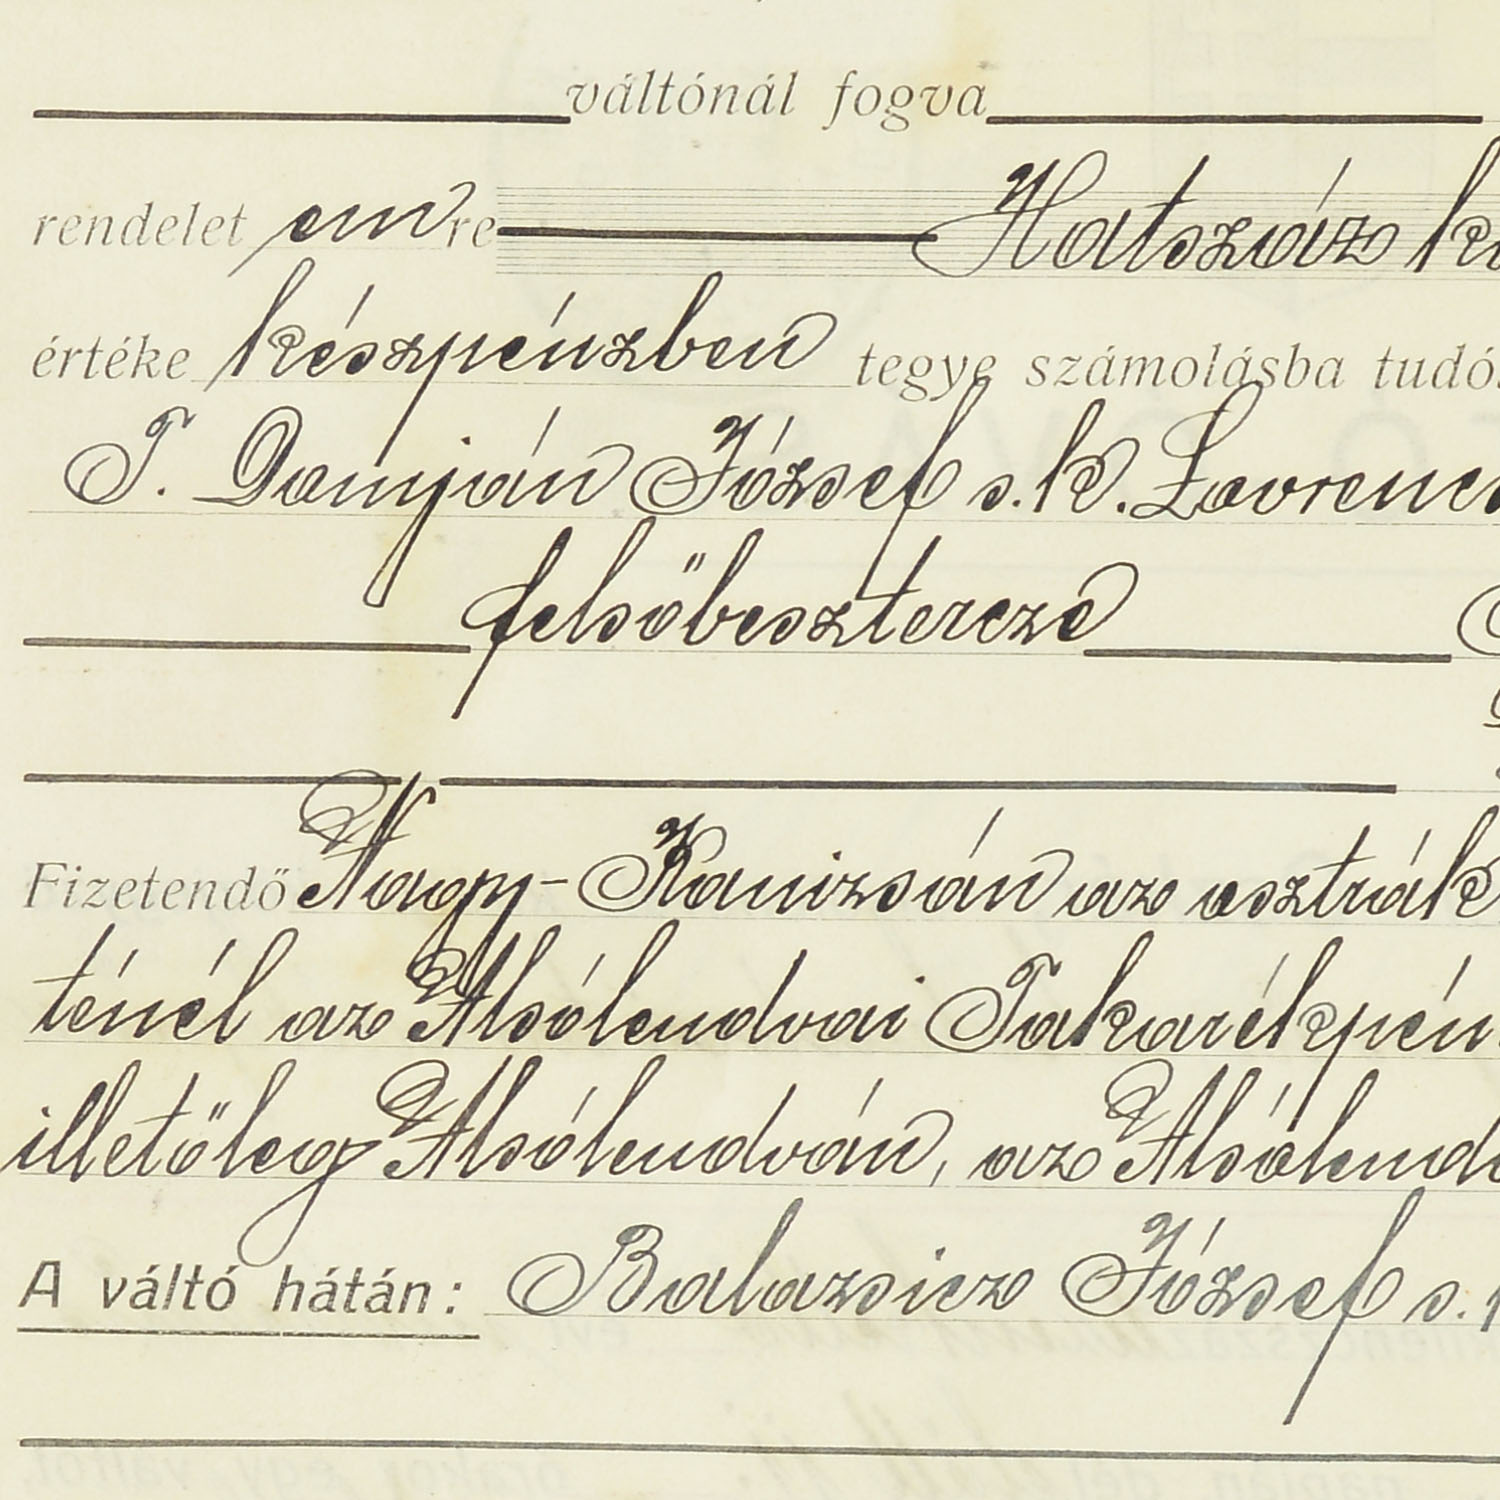 váltónál fogva
rendelet em re Hatszáz k
értéke készpénzben tegye számolásba tudó
T. Damján József s.k. Lovrenc
felsőbesztercze
Fizetendő Nagy-Kanizsán az osztrák
ténél az Alsólendvai Takarékpén
illetőleg Alsólendván, az Alsólend
A váltó hátán: Balazsicz József s.